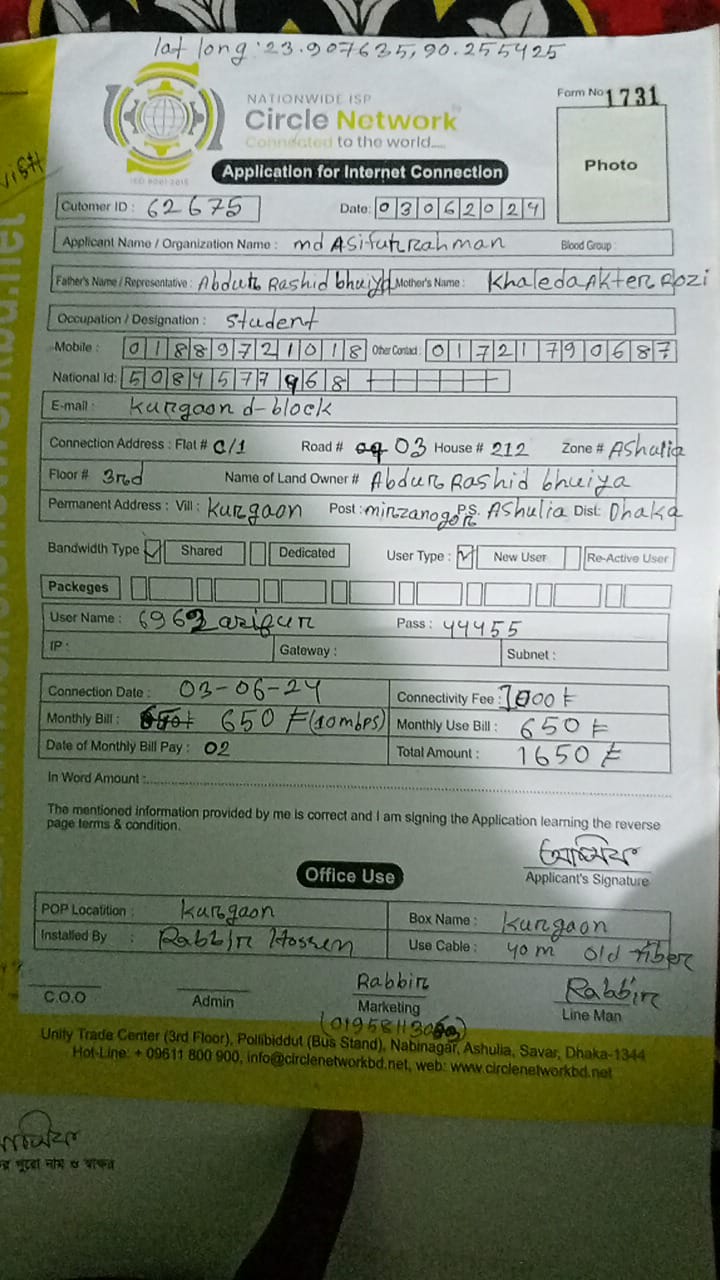 lat long : 23.907635, 90.255425
NATIONWIDE ISP
Circle Network
Connected to the world.....
ISO 9001:2015
Form No 1731
Application for Internet Connection
Photo
Cutomer ID : 62675 Date: 03062024
Applicant Name / Organization Name : md Asifur Rahman Blood Group
Father's Name / Representative : Abdur Rashid bhuiyd Mother's Name : Khaleda Akter Rozi
Occupation / Designation : Student
Mobile : 01889721018 Other Contact : 01721790687
National Id: 5084577968
E-mail : Kurgaon d-block
Connection Address : Flat # C/1 Road # 03 House # 212 Zone # Ashulia
Floor # 3rd Name of Land Owner # Abdur Rashid bhuiya
Permanent Address : Vill : Kurgaon Post : mirzanogor P.S. Ashulia Dist: Dhaka
Bandwidth Type Shared Dedicated User Type : New User Re-Active User
Packeges
User Name : 6962arifur Pass : 44455
IP : Gateway : Subnet :
Connection Date : 03-06-24 Connectivity Fee : 1000 ৳
Monthly Bill : 650 ৳ (10mbps) Monthly Use Bill : 650 ৳
Date of Monthly Bill Pay : 02 Total Amount : 1650 ৳
In Word Amount :
The mentioned information provided by me is correct and I am signing the Application learning the reverse
page terms & condition.
Applicant's Signature
Office Use
POP Locatition : Kurgaon Box Name : Kurgaon
Installed By : Rabbir Hossen Use Cable : 40 m old fiber
C.O.O Admin Rabbir Rabbir
Marketing Line Man
Unity Trade Center (3rd Floor), Pollibiddut (Bus Stand), Nabinagar, Ashulia, Savar, Dhaka-1344
Hot-Line: + 09611 800 900, info@circlenetworkbd.net, web: www.circlenetworkbd.net